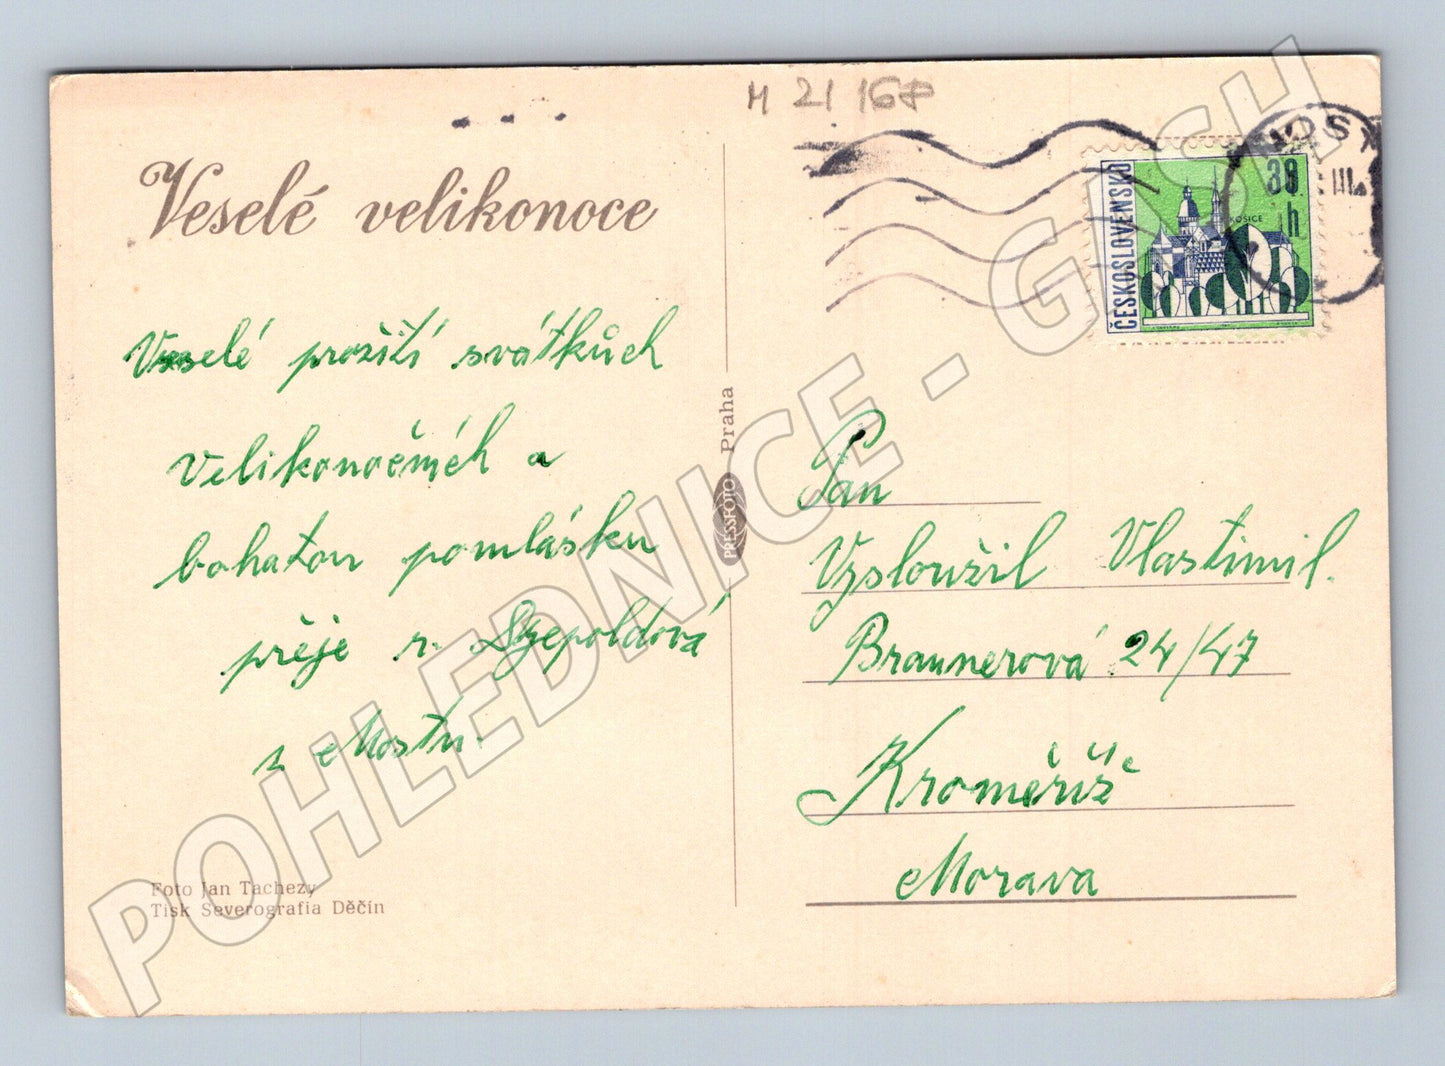 M 21 168
Veselé velikonoce
Veselé prožití svátkůch
velikonočních a
bohatou pomlásku
přeje r. Szepoldová
z Mostu.
Foto Jan Tachezy
Tisk Severografia Děčín
PRESSFOTO Praha
MOST
III.
ČESKOSLOVENSKO
30 h
KOŠICE
Pan
Vysloužil Vlastimil.
Braunerová 24/47
Kroměříž
Morava
POHLEDNICE - GASH